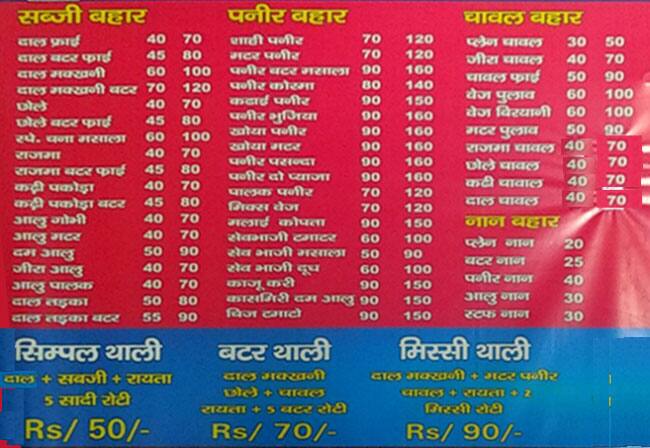 सब्जी बहार
दाल फ्राई 40 70
दाल बटर फ्राई 45 80
दाल मक्खनी 60 100
दाल मक्खनी बटर 70 120
छोले 40 70
छोले बटर फ्राई 45 80
स्पे. चना मसाला 60 100
राजमा 40 70
राजमा बटर फ्राई 45 80
कढ़ी पकोड़ा 40 70
कढ़ी पकोड़ा बटर 45 80
आलु गोभी 40 70
आलु मटर 40 70
दम आलु 50 90
जीरा आलु 40 70
आलु पालक 40 70
दाल तड़का 50 80
दाल तड़का बटर 55 90
पनीर बहार
शाही पनीर 70 120
मटर पनीर 70 120
पनीर बटर मसाला 90 160
पनीर कोरमा 80 140
कढाई पनीर 90 150
पनीर भुजिया 90 160
खोया पनीर 90 160
खोया मटर 90 160
पनीर पसन्दा 90 160
पनीर दो प्याजा 90 160
पालक पनीर 70 120
मिक्स वेज 70 120
मलाई कोफ्ता 90 150
सेवभाजी टमाटर 60 100
सेव भाजी मसाला 50 90
सेव भाजी दूध 60 100
काजू करी 90 150
कासमिरी दम आलु 90 150
चिज टमाटो 90 150
चावल बहार
प्लेन चावल 30 50
जीरा चावल 40 70
चावल फ्राई 50 90
वेज पुलाव 60 100
वेज बिरयानी 60 100
मटर पुलाव 50 90
राजमा चावल 40 70
छोले चावल 40 70
कढी चावल 40 70
दाल चावल 40 70
नान बहार
प्लेन नान 20
बटर नान 25
पनीर नान 40
आलु नान 30
स्टफ नान 30
सिम्पल थाली
दाल + सबजी + रायता
5 सादी रोटी
Rs/ 50/-
बटर थाली
दाल मक्खनी
छोले + चावल
रायता + 5 बटर रोटी
Rs/ 70/-
मिस्सी थाली
दाल मक्खनी + मटर पनीर
चावल + रायता + 2
मिस्सी रोटी
Rs/ 90/-